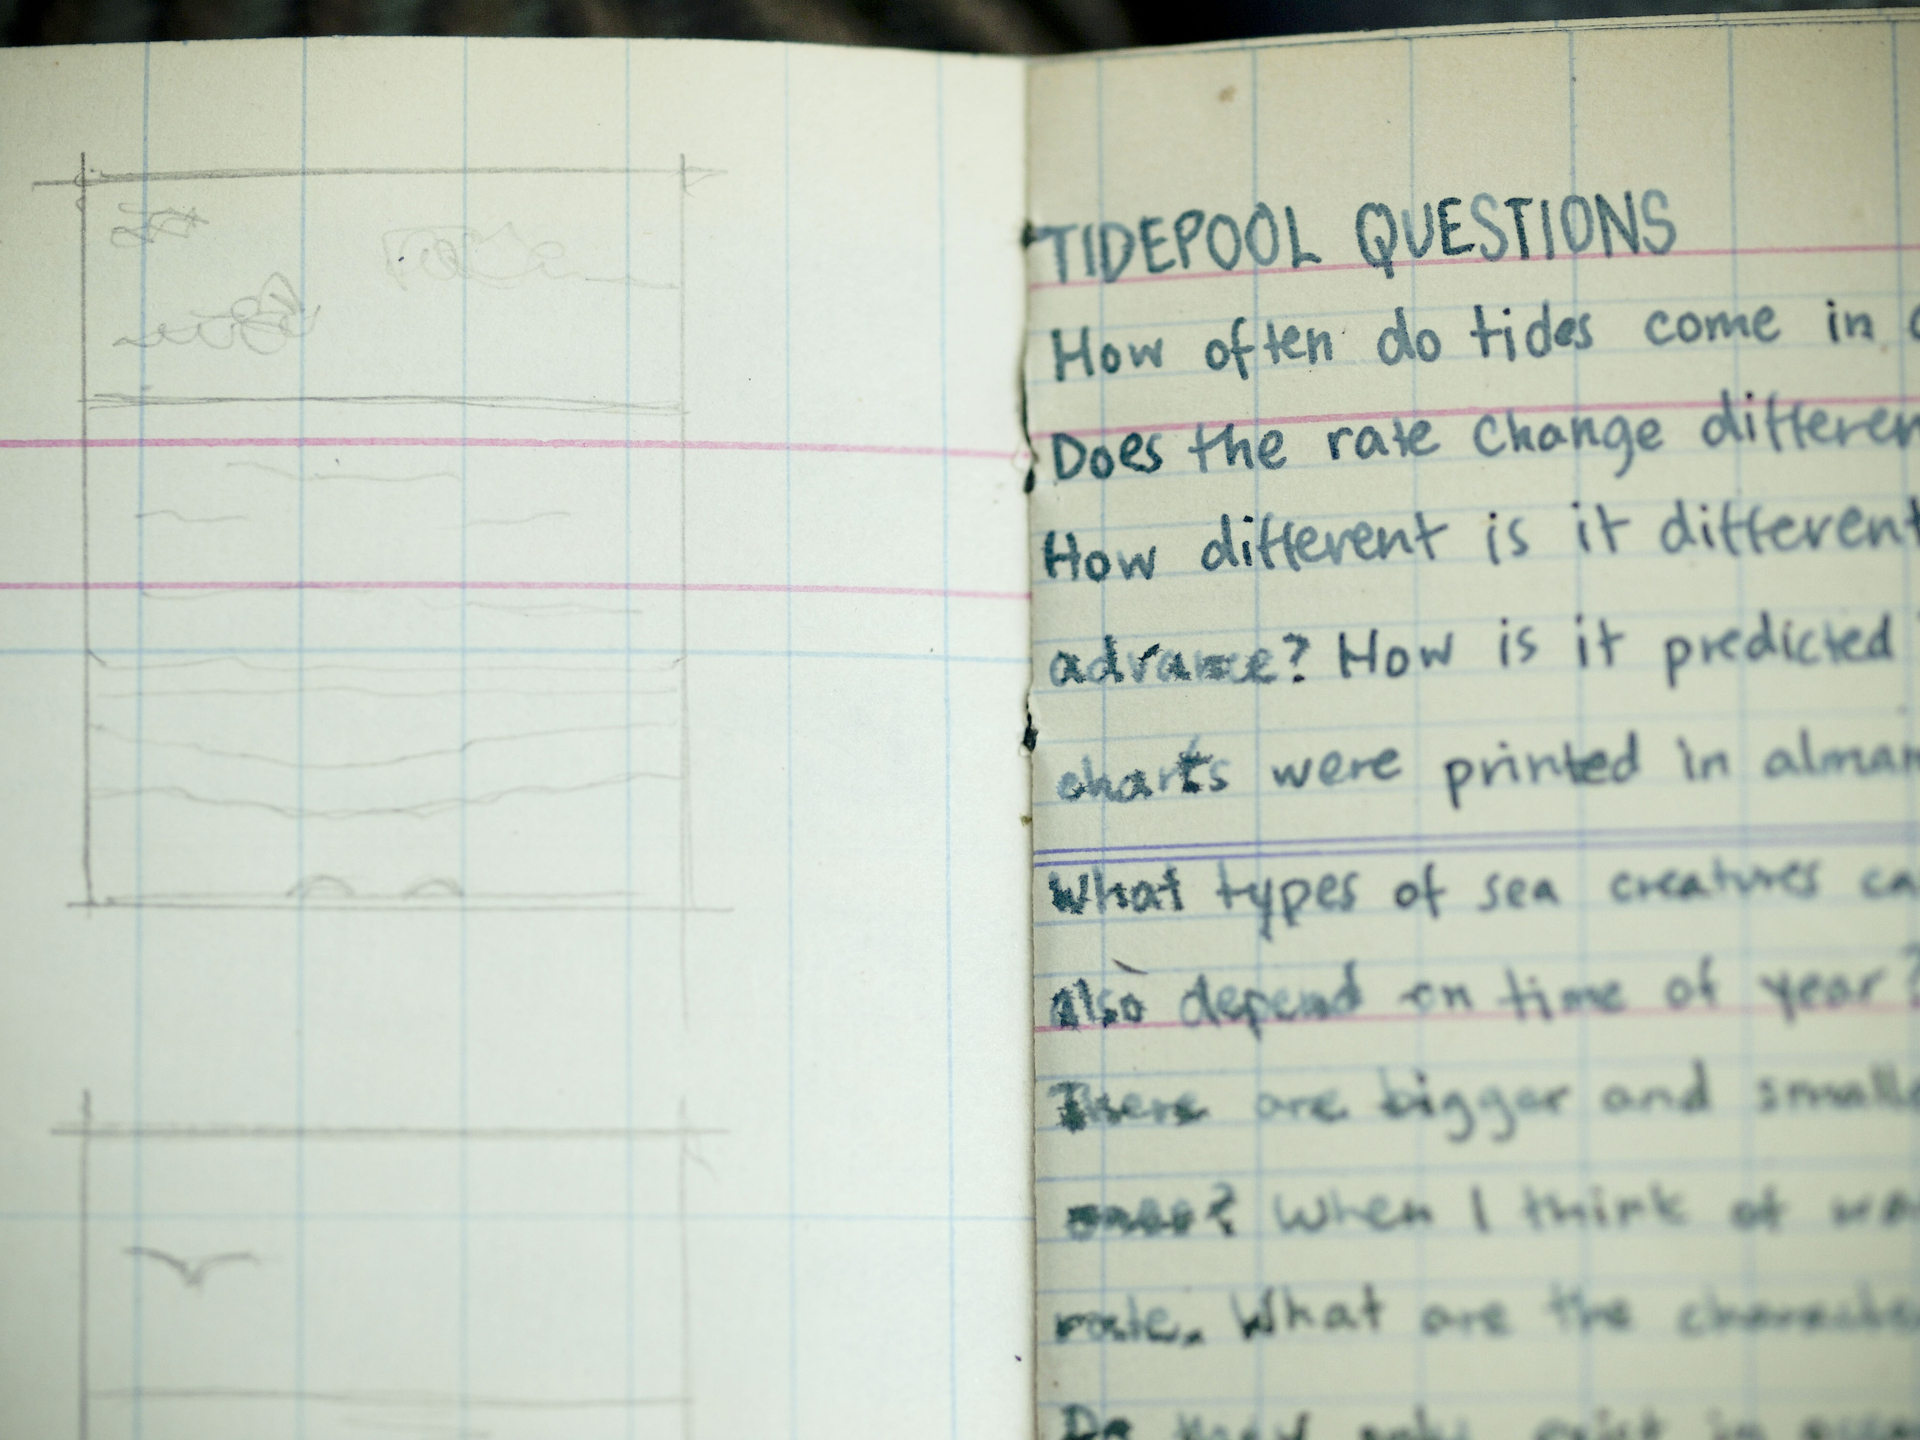 TIDEPOOL QUESTIONS
How often do tides come in
Does the rate change differen
How different is it different
advance? How is it predicted
charts were printed in alman
What types of sea creatures ca
also depend on time of year?
There are bigger and smalle
ones? When I think of wa
rate. What are the characte
Do they only exist in